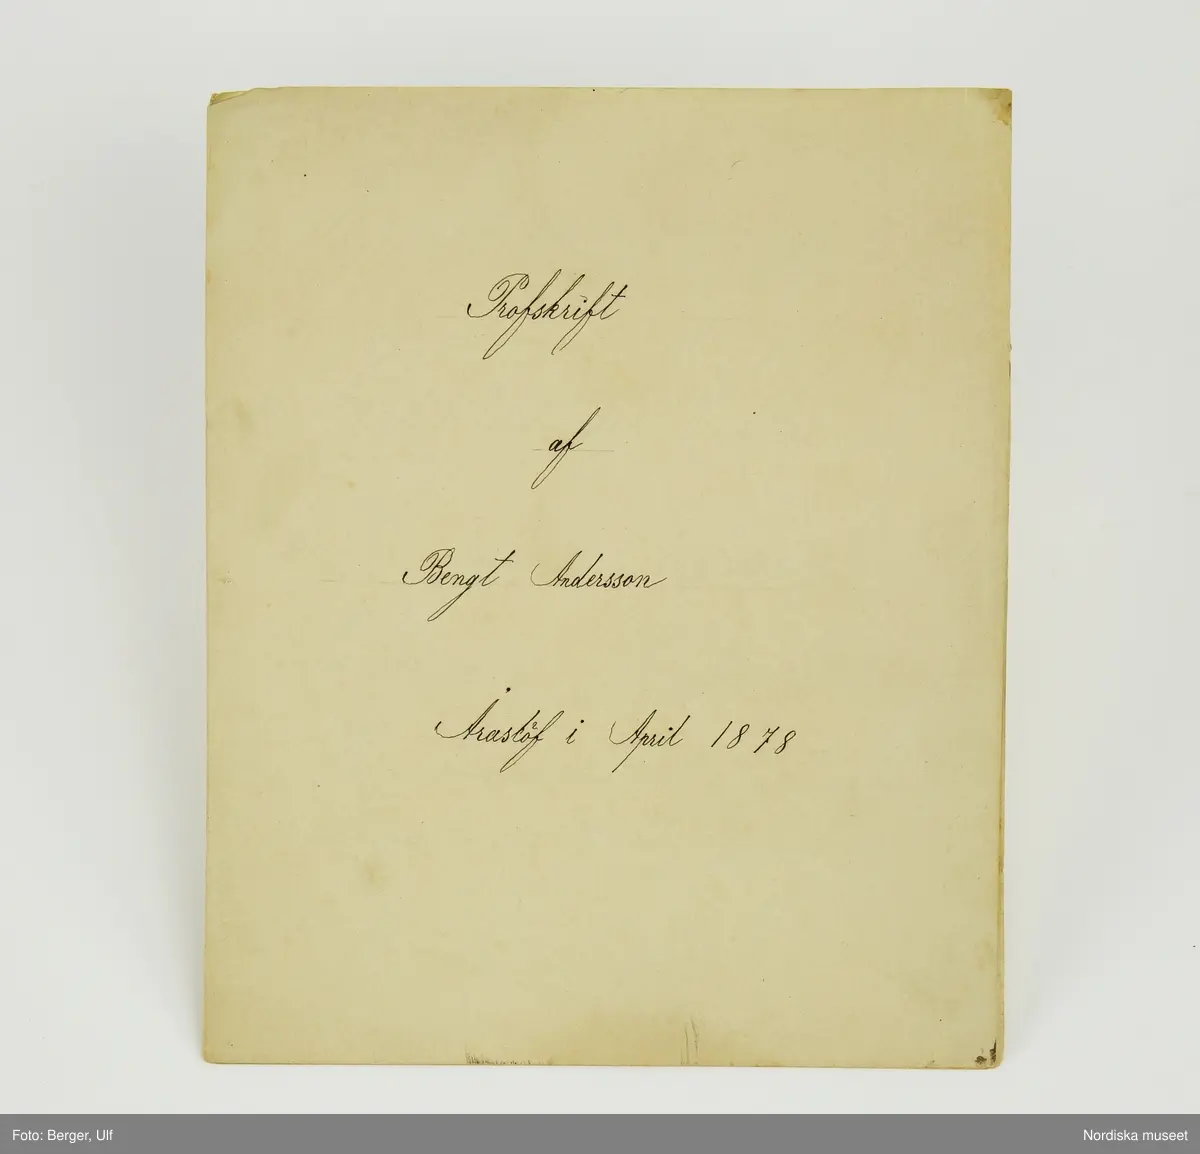 Profskrift
af
Bengt Andersson
Araslöf i April 1878
Foto: Berger, Ulf
Nordiska museet